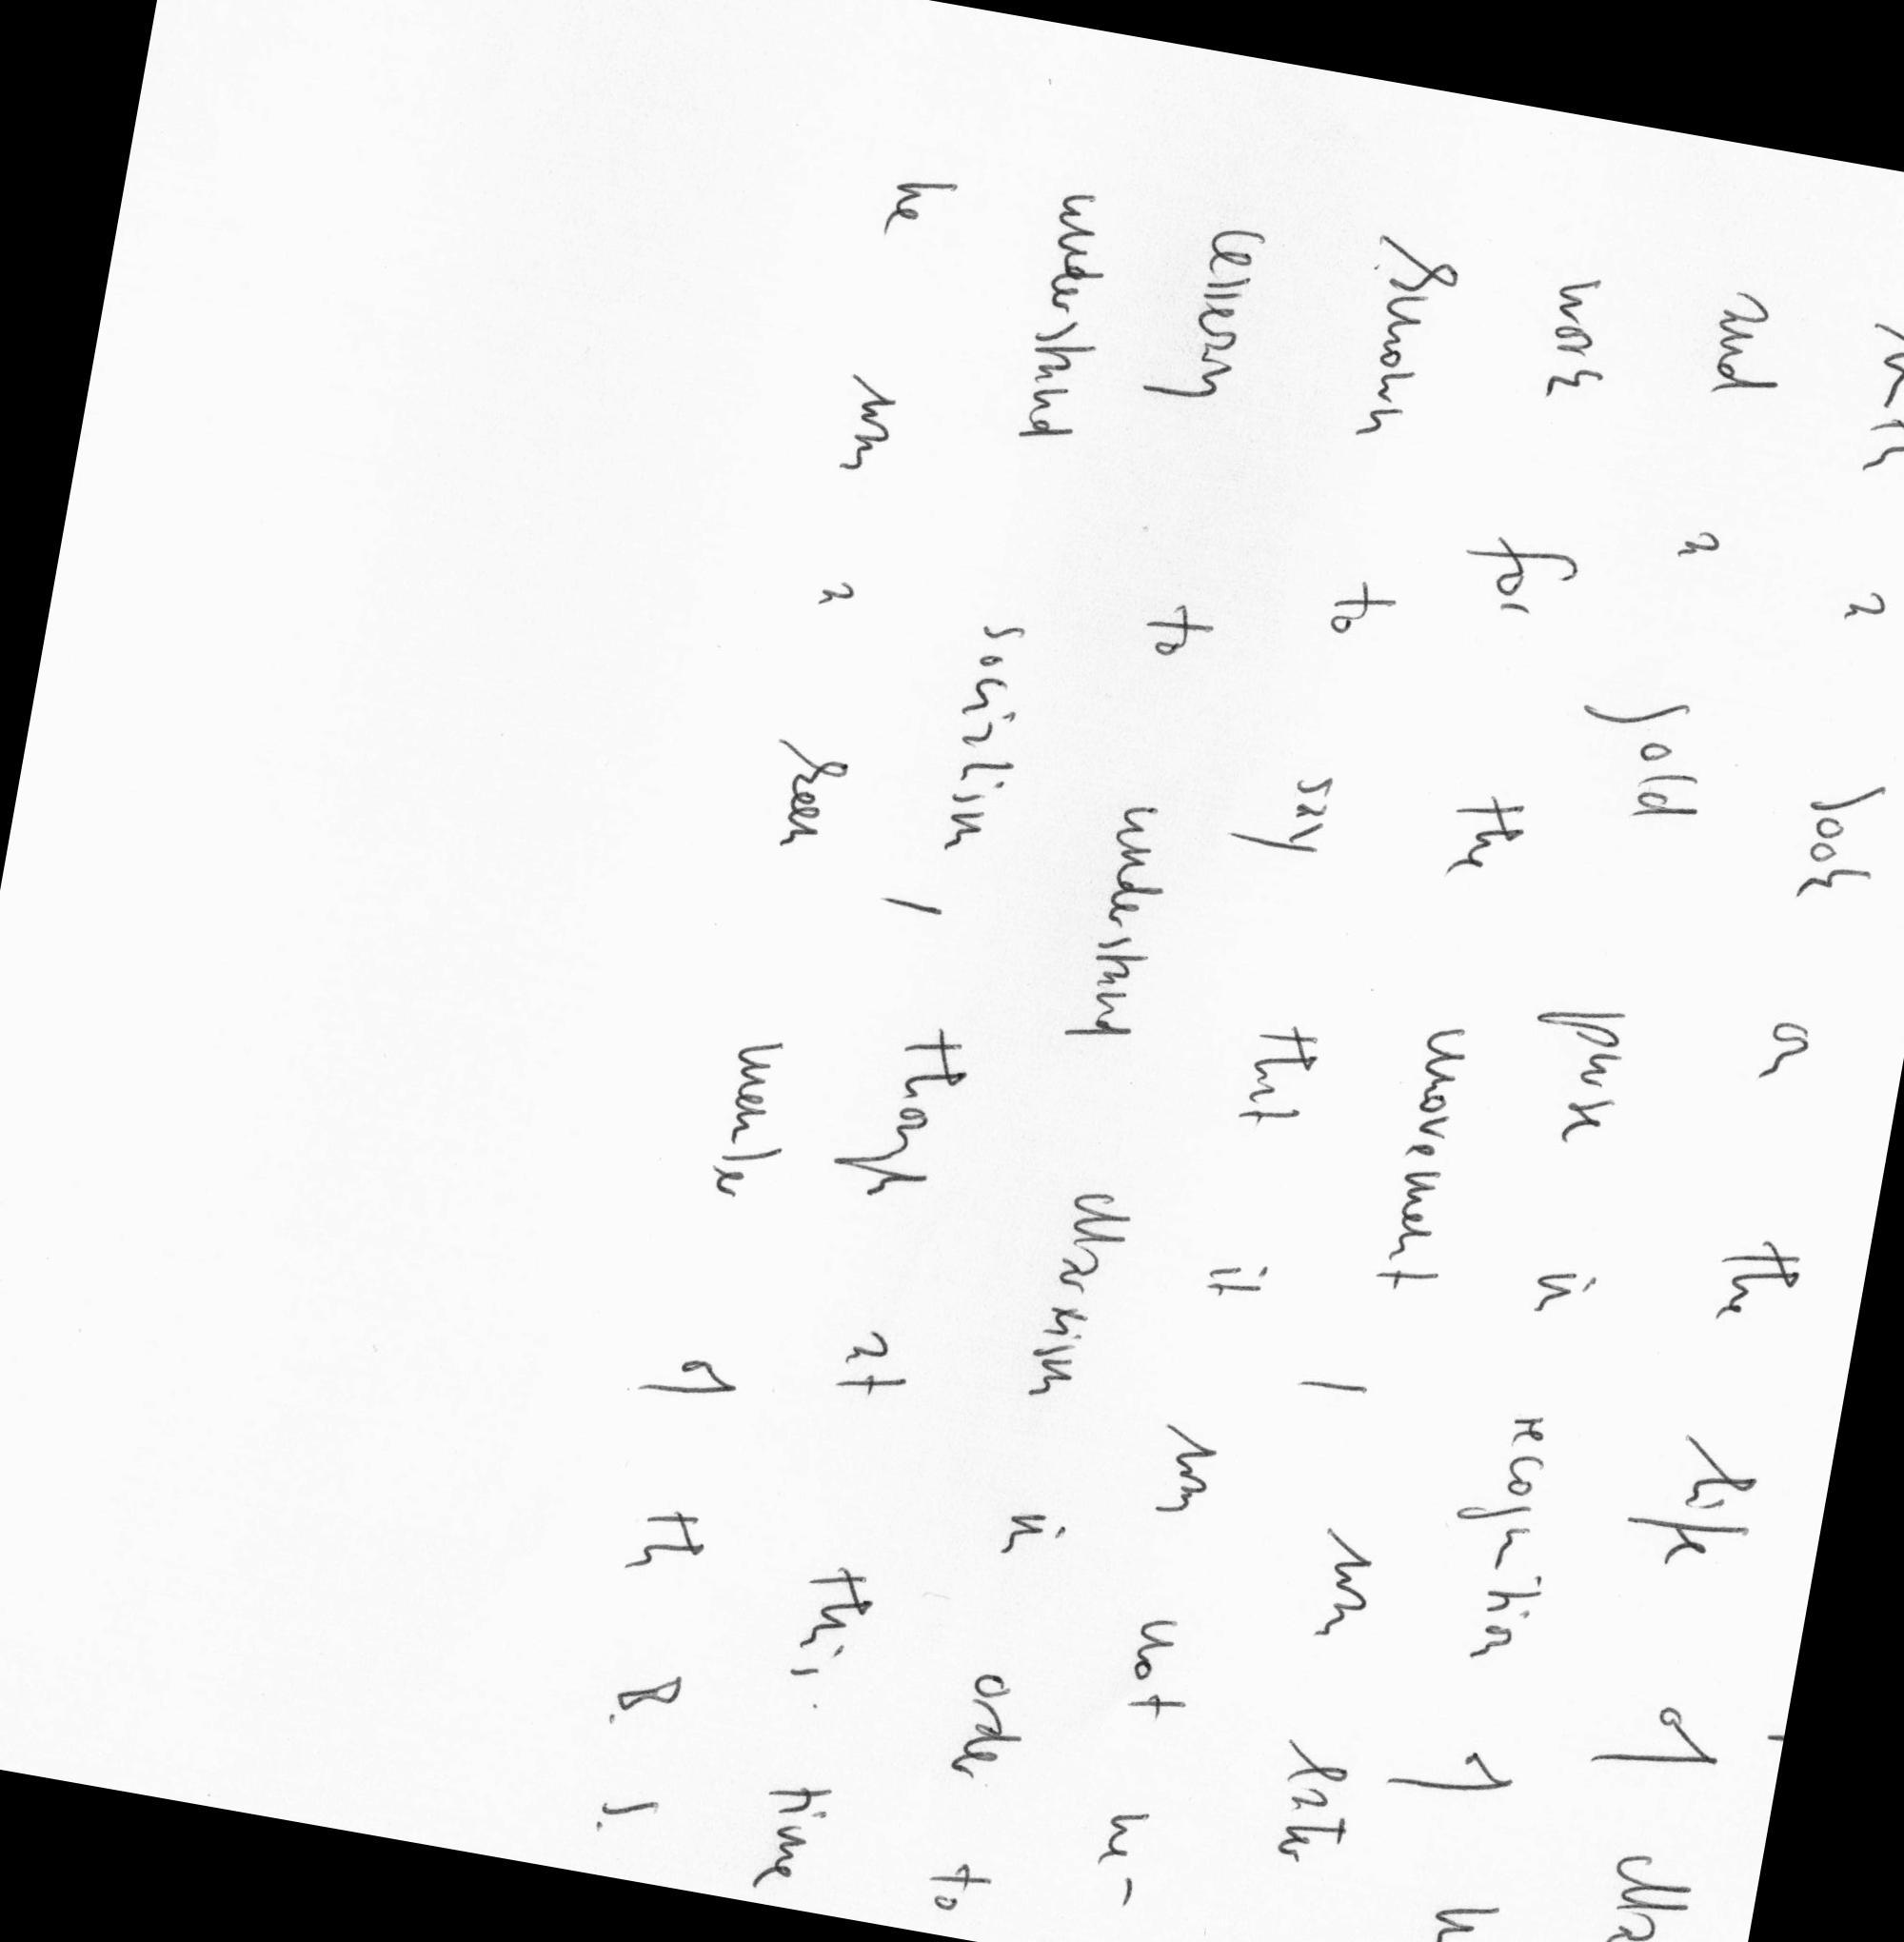 with a book on the life of Ma
and a gold purse in recognition of h
work for the movement. I was later
known to say that it was not ne-
cessary to understand Marxism in order to
understand socialism, though at this time
he was a keen member of the B.S.